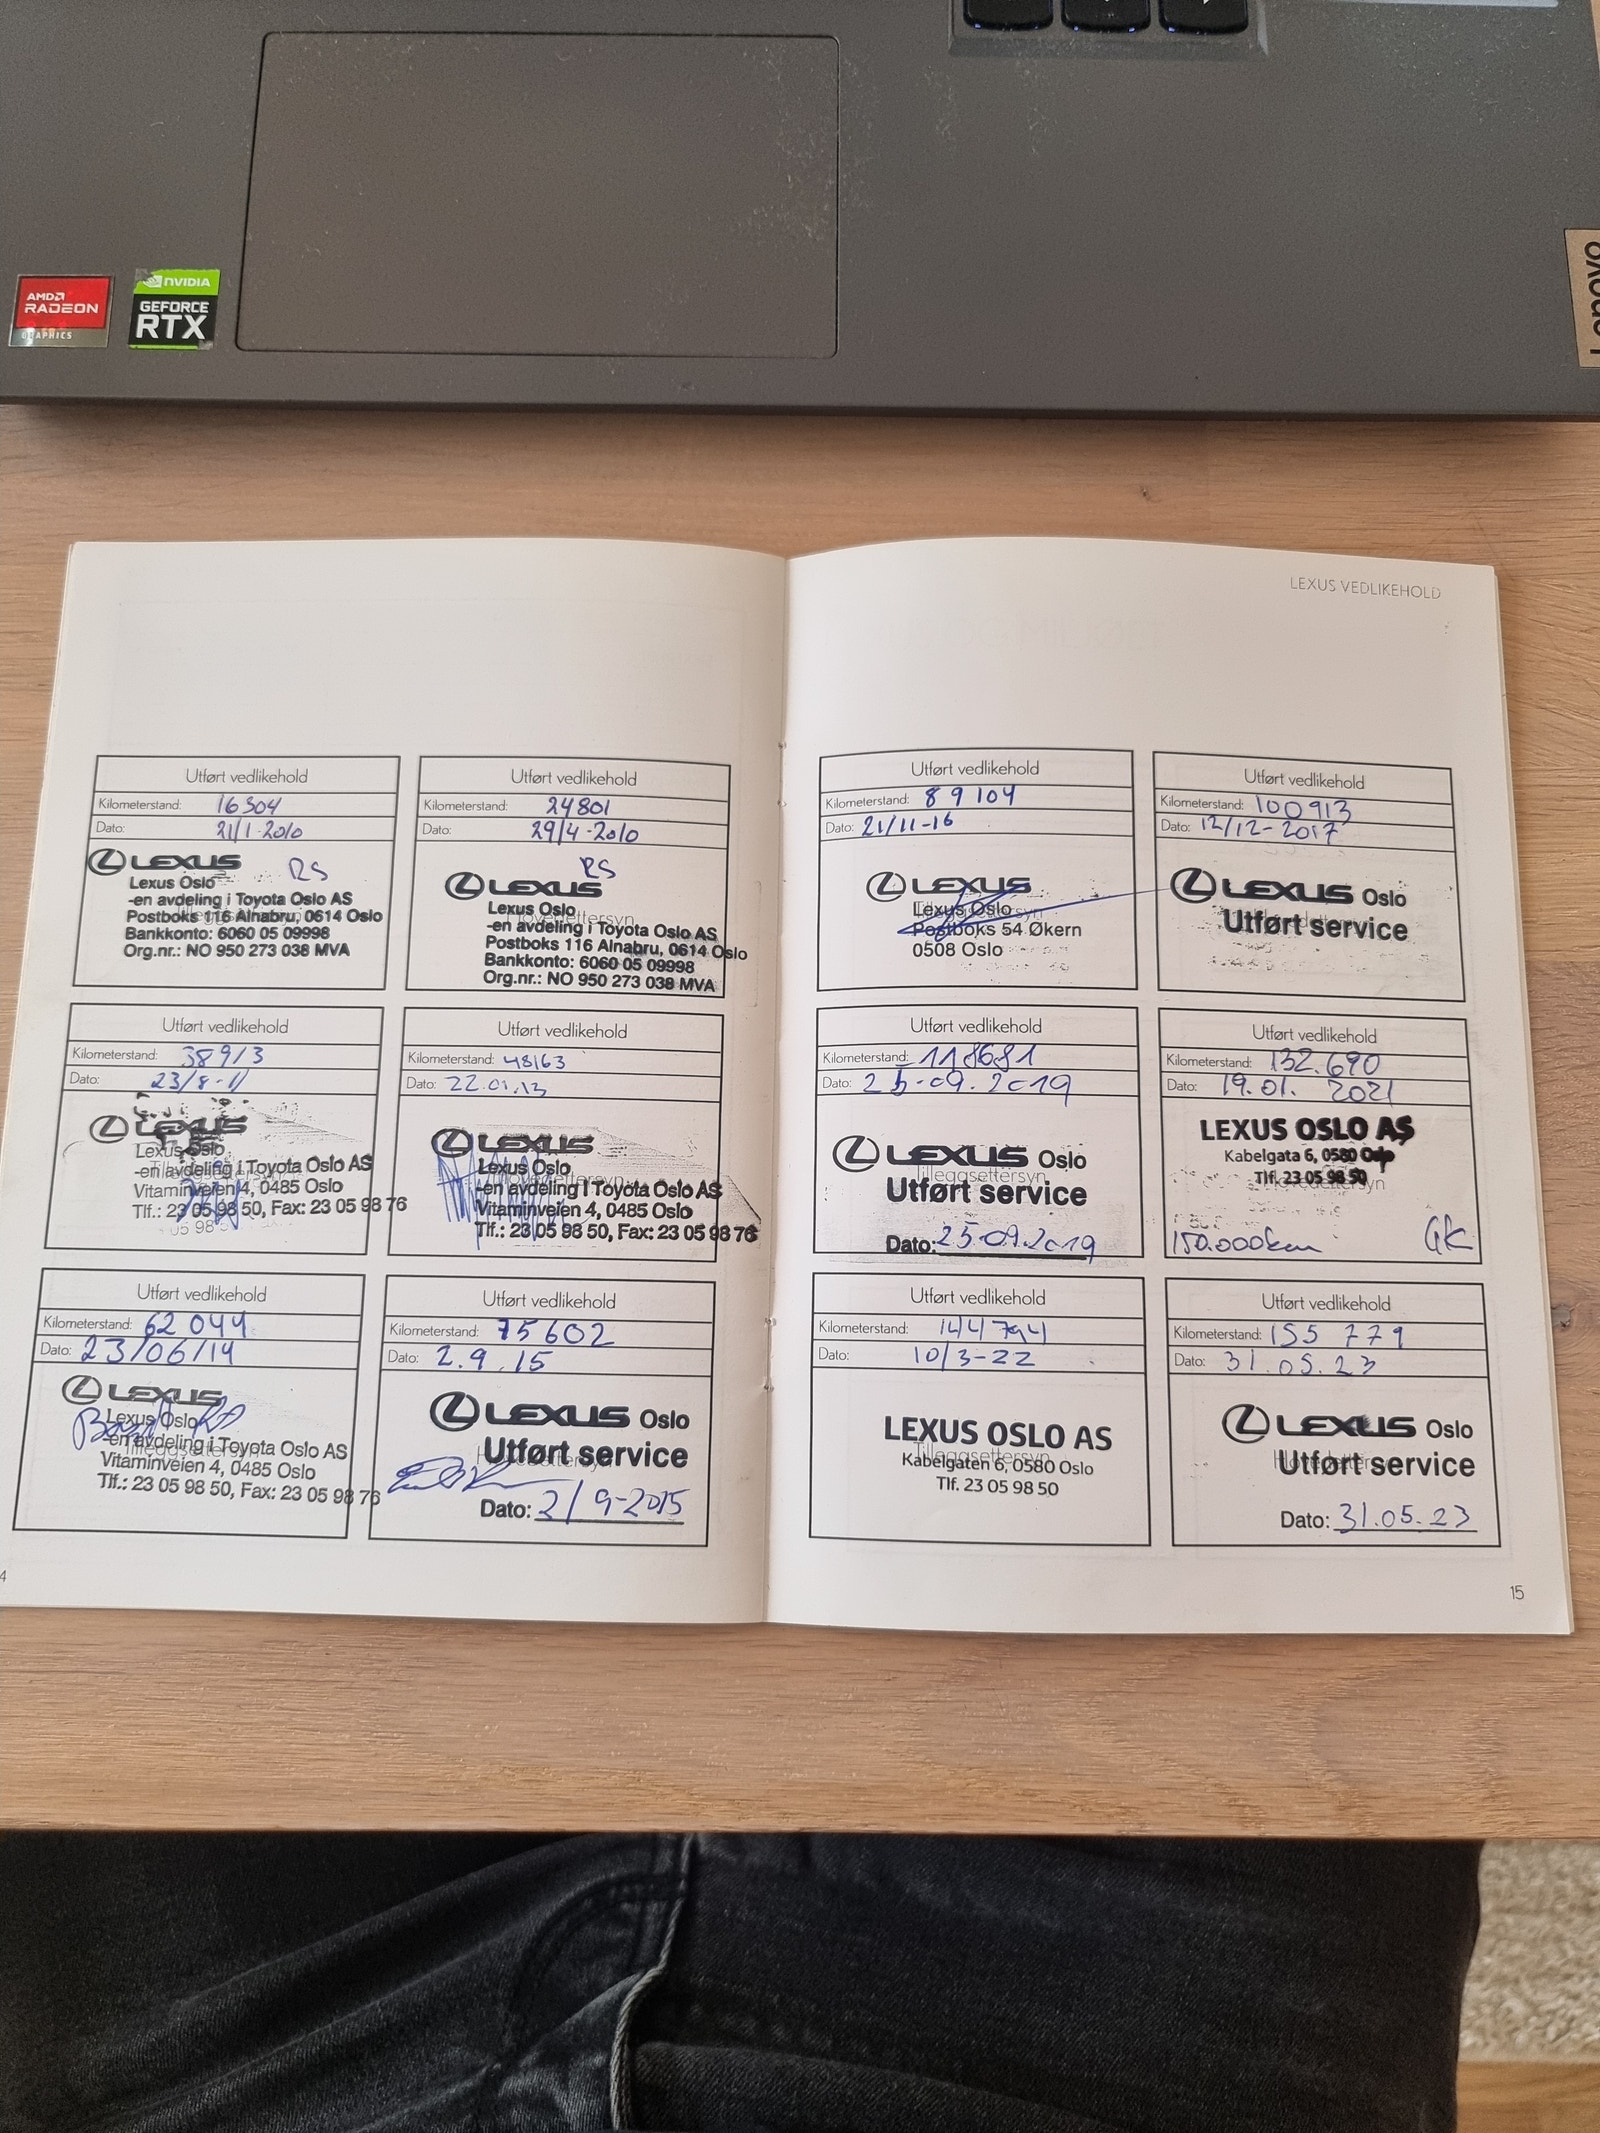 AMD
RADEON
GRAPHICS
NVIDIA
GEFORCE
RTX
Lenovo
LEXUS VEDLIKEHOLD
Utført vedlikehold
Kilometerstand: 16304
Dato: 21/1-2010
LEXUS RS
Lexus Oslo
-en avdeling i Toyota Oslo AS
Postboks 116 Alnabru, 0614 Oslo
Bankkonto: 6060 05 09998
Org.nr.: NO 950 273 038 MVA
Utført vedlikehold
Kilometerstand: 24801
Dato: 29/4-2010
RS
LEXUS
Lexus Oslo
Hovedettersyn
-en avdeling i Toyota Oslo AS
Postboks 116 Alnabru, 0614 Oslo
Bankkonto: 6060 05 09998
Org.nr.: NO 950 273 038 MVA
Utført vedlikehold
Kilometerstand: 38913
Dato: 23/8-11
LEXUS
Lexus Oslo
-en avdeling i Toyota Oslo AS
Tilleggsettersyn
Vitaminveien 4, 0485 Oslo
Tlf.: 23 05 98 50, Fax: 23 05 98 76
05 98
Utført vedlikehold
Kilometerstand: 48163
Dato: 22.01.13
LEXUS
Lexus Oslo
-en avdeling i Toyota Oslo AS
Vitaminveien 4, 0485 Oslo
Tlf.: 23 05 98 50, Fax: 23 05 98 76
Utført vedlikehold
Kilometerstand: 62044
Dato: 23/06/14
LEXUS
Lexus Oslo
-en avdeling i Toyota Oslo AS
Tilleggsettersyn
Vitaminveien 4, 0485 Oslo
Tlf.: 23 05 98 50, Fax: 23 05 98 76
Utført vedlikehold
Kilometerstand: 75602
Dato: 2.9.15
LEXUS Oslo
Utført service
Hovedettersyn
Dato: 2/9-2015
Utført vedlikehold
Kilometerstand: 89104
Dato: 21/11-16
LEXUS
Lexus Oslo
Postboks 54 Økern
0508 Oslo
Utført vedlikehold
Kilometerstand: 100913
Dato: 12/12-2017
LEXUS Oslo
Hovedettersyn
Utført service
Utført vedlikehold
Kilometerstand: 118681
Dato: 25-09.2019
LEXUS Oslo
Tilleggsettersyn
Utført service
Dato: 25.09.2019
Utført vedlikehold
Kilometerstand: 132.690
Dato: 19.01. 2021
LEXUS OSLO AS
Kabelgata 6, 0580 Oslo
Tlf. 23 05 98 50
Hovedettersyn
150.000km GK
Utført vedlikehold
Kilometerstand: 144794
Dato: 10/3-22
LEXUS OSLO AS
Tilleggsettersyn
Kabelgaten 6, 0580 Oslo
Tlf. 23 05 98 50
Utført vedlikehold
Kilometerstand: 155 779
Dato: 31.05.23
LEXUS Oslo
Hovedettersyn
Utført service
Dato: 31.05.23
4
15